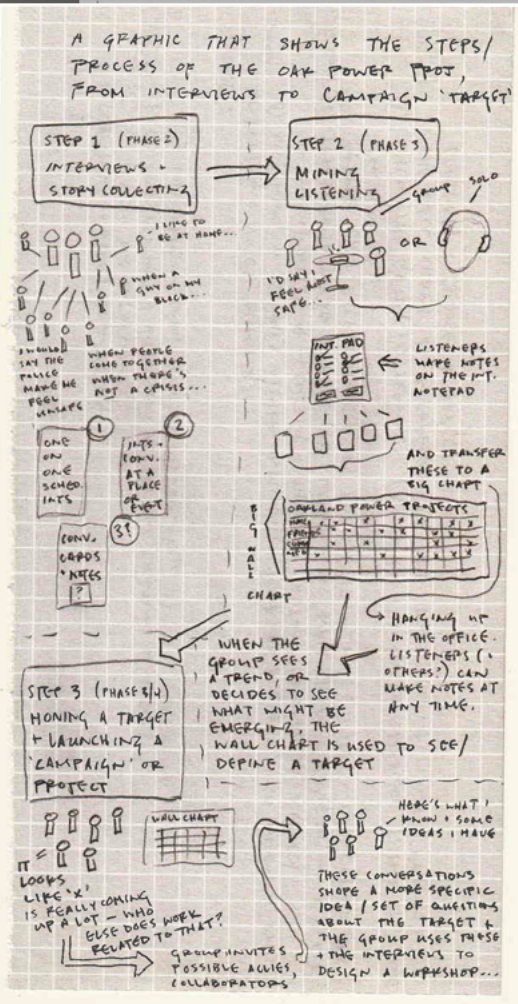 A GRAPHIC THAT SHOWS THE STEPS/
PROCESS OF THE OAK POWER PROJ,
FROM INTERVIEWS TO CAMPAIGN 'TARGET'
STEP 1 (PHASE 2)
INTERVIEWS +
STORY COLLECTING
I LIKE TO
BE AT HOME...
WHEN A
GUY ON MY
BLOCK...
I WOULD
SAY THE
POLICE
MAKE ME
FEEL
UNSAFE
WHEN PEOPLE
COME TOGETHER
WHEN THERE'S
NOT A CRISIS...
1
ONE
ON
ONE
SCHED.
INTS
2
INTS +
CONV.
AT A
PLACE
OR
EVENT
3?
CONV.
CARDS
+ NOTES
?
STEP 2 (PHASE 3)
MINING
LISTENING
GROUP
SOLO
OR
I'D SAY I
FEEL NOT
SAFE...
INT. PAD
LISTENERS
MAKE NOTES
ON THE INT.
NOTEPAD
AND TRANSFER
THESE TO A
BIG CHART
BIG
WALL
CHART
OAKLAND POWER PROJECTS
HANGING UP
IN THE OFFICE.
LISTENERS (+
OTHERS?) CAN
MAKE NOTES AT
ANY TIME.
WHEN THE
GROUP SEES
A TREND, OR
DECIDES TO SEE
WHAT MIGHT BE
EMERGING, THE
WALL CHART IS USED TO SEE/
DEFINE A TARGET
STEP 3 (PHASE 3/4)
HONING A TARGET
+ LAUNCHING A
'CAMPAIGN' OR
PROJECT
WALL CHART
IT
LOOKS
LIKE 'X'
IS REALLY COMING
UP A LOT – WHO
ELSE DOES WORK
RELATED TO THAT?
GROUP INVITES
POSSIBLE ALLIES,
COLLABORATORS
HERE'S WHAT I
KNOW + SOME
IDEAS I HAVE
THESE CONVERSATIONS
SHAPE A MORE SPECIFIC
IDEA / SET OF QUESTIONS
ABOUT THE TARGET +
THE GROUP USES THESE
+ THE INTERVIEWS TO
DESIGN A WORKSHOP...